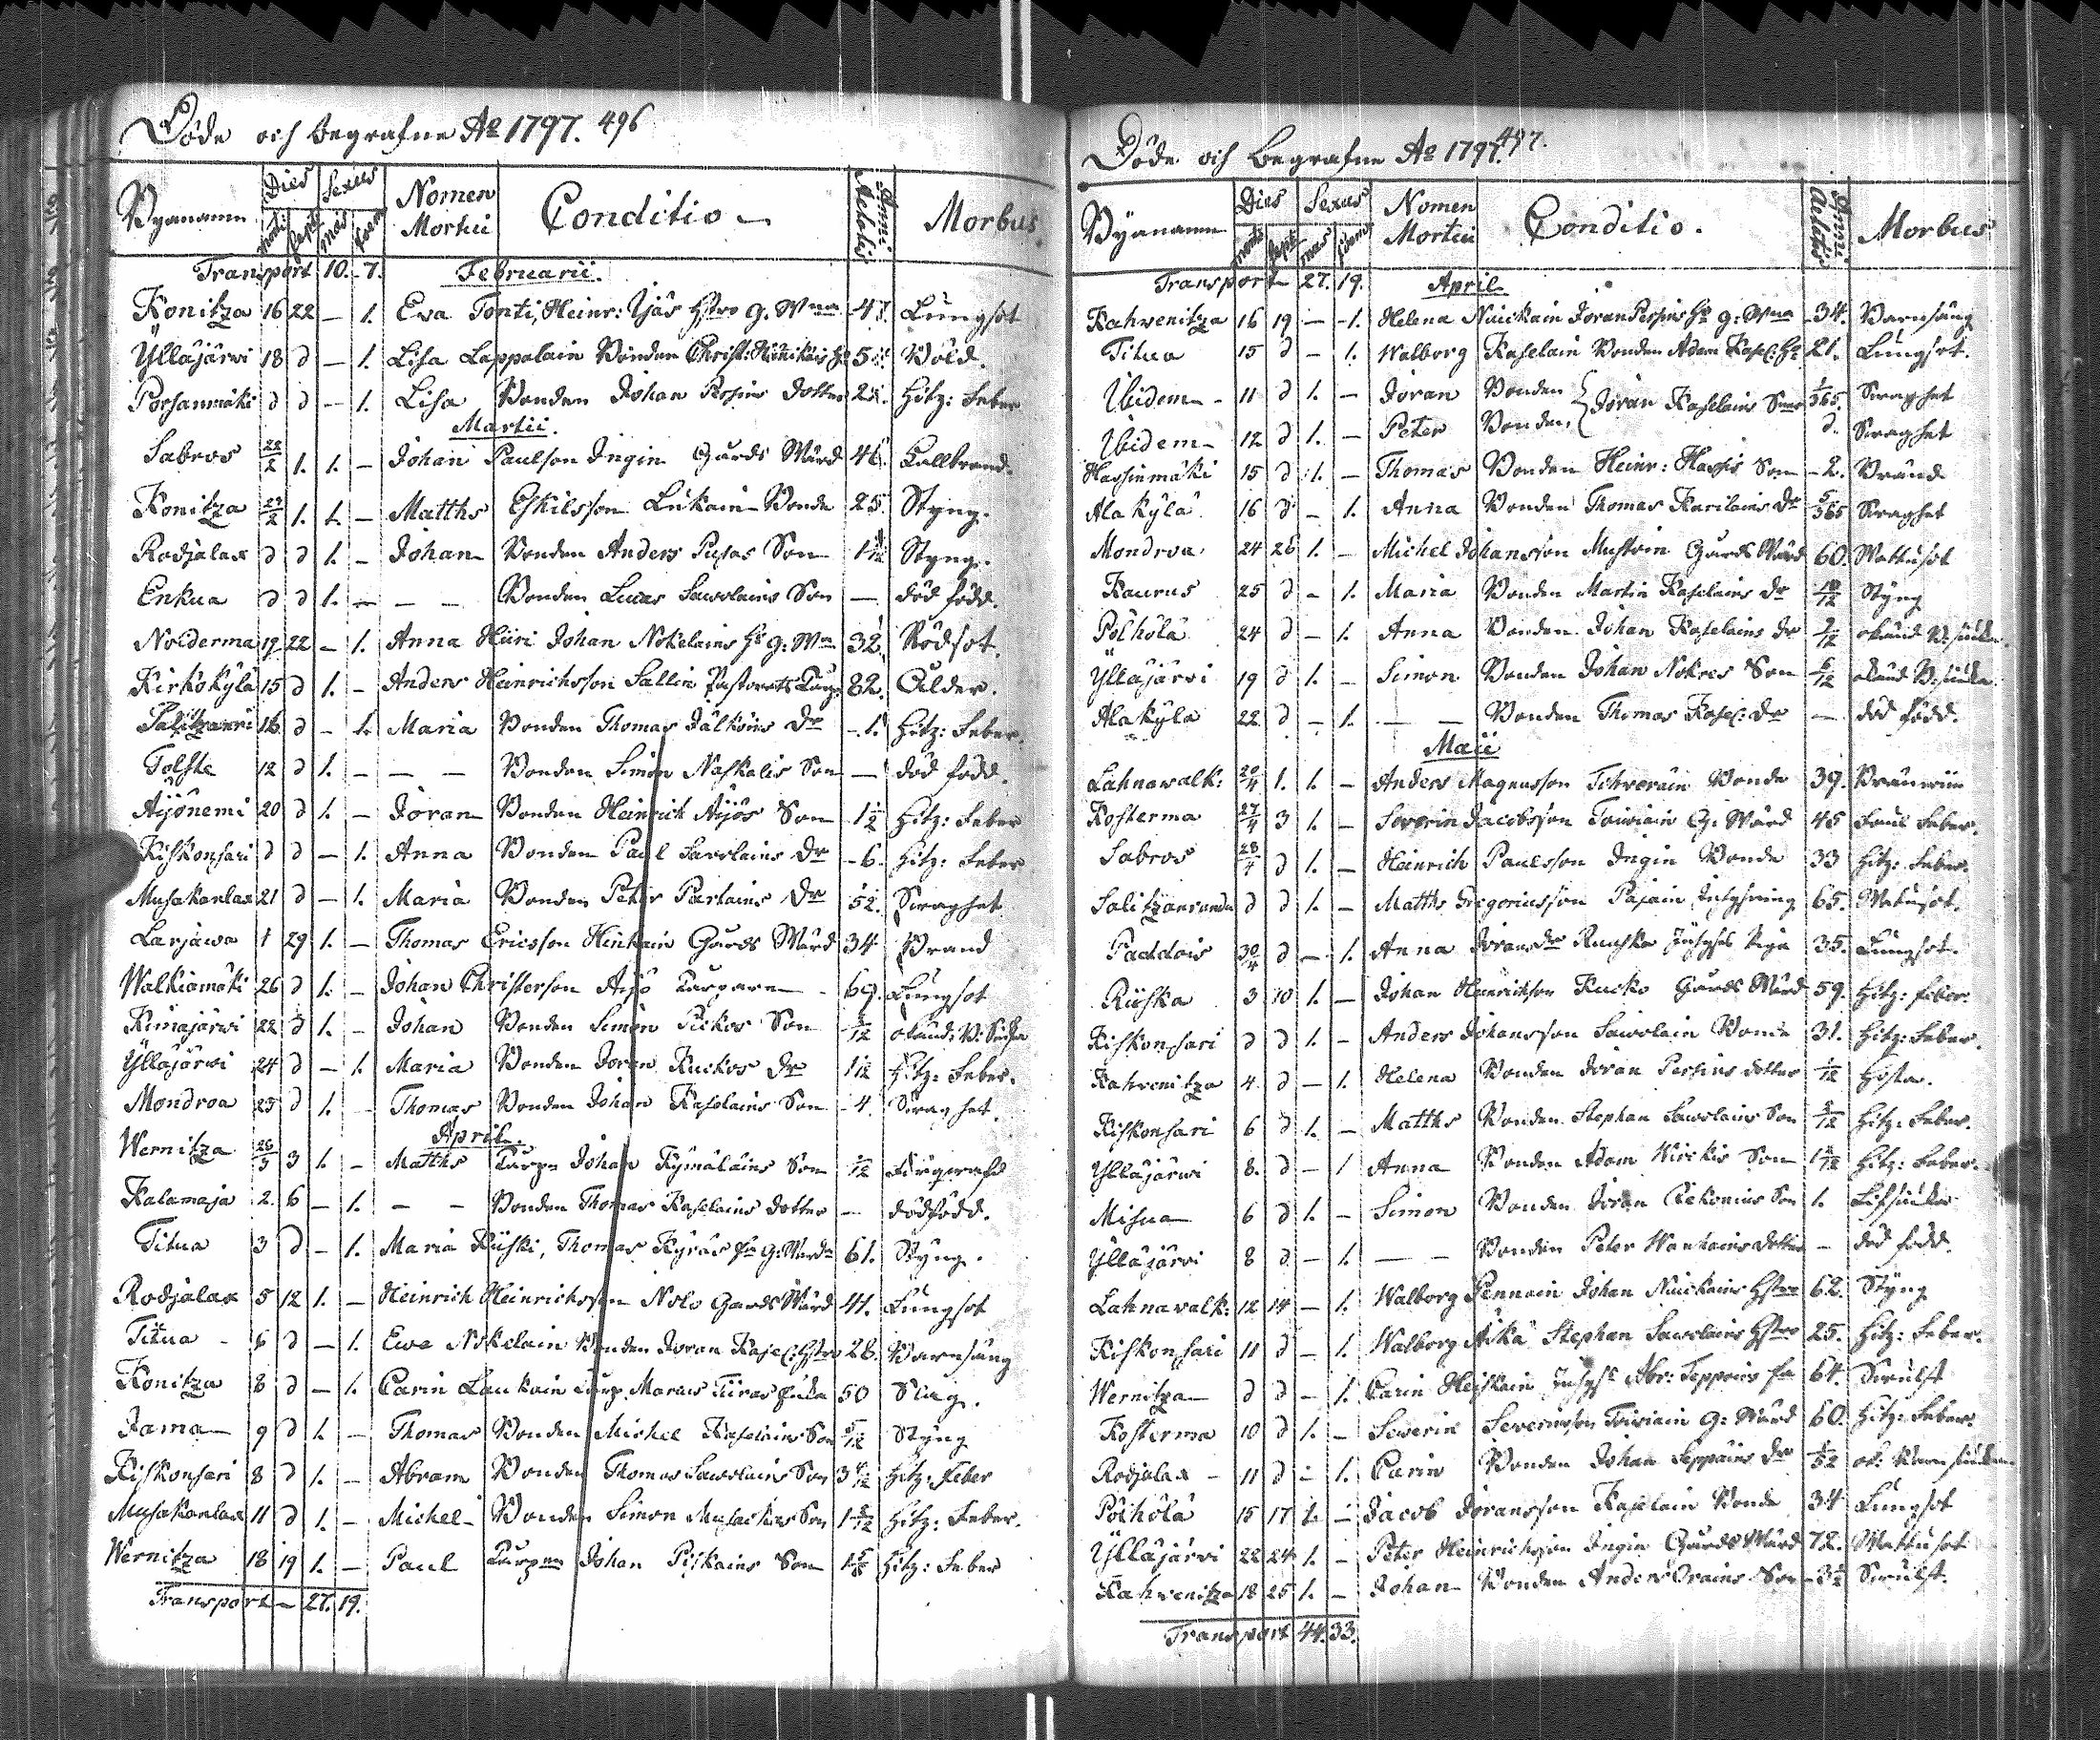 Döde och begrafne Aº 1797. 496
Bynamn Dies Sexus Nomen Mortui Conditio Anni Aetatis Morbus.
morti sepul mas foem
Transport 10. 7. Februarii.
Konitza 16 22 – 1. Eva Tonti, Heinr: Ijäs Hstro g. Wna 47. Lungsot
Ylläjärvi 18 d – 1. Lisa Lappalain Bonden Christ: Wåld.
Porsanmäki d d – 1. Lisa Bonden Johan Pessins dotter Hitz: Feber
Martii.
Sabros 22/2 1. 1. – Johan Paulson Ingin Gårds Wärd 46. Kallbrand.
Konitza 1. 1. – Matths Eskilsson Lukain Bonde 25. Styng.
Rodjalax d d 1. – Johan Bonden Anders Son Styng.
Enkua d d 1. – – – Bonden Lucas Savolains Son – död född.
Nolderma 19 22 – 1. Anna Huri Johan Nokelains Hs g. Wn 32. Rödsot.
Kirkokylä 15 d 1. – Anders Heinrichsson Sallin 82. Ålder.
16. d – 1. Maria Bonden Thomas Jälköins Dr 1. Hitz: Feber.
Tolste 12 d 1. – – – Bonden Simon Naskalis Son – död född.
Äijönemi 20 d 1. – Jöran Bonden Heinrich Äijös Son 1½ Hitz: Feber
Kiskonsari d d – 1. Anna Bonden Paul Savolains Dr 6. Hitz: Feber
Musakanlax 21 d – 1. Maria Bonden Peter Partains Dr Swaghet
Larjawa 1 29 1. – Thomas Ericsson Hinkain Gårds Wärd 34 Brand
Walkiamäki 26 d 1. – Johan Christerson Äijö 69. Lungsot
Kimajärvi 22 d 1. – Johan Bonden Simon Son
Ylläjärvi 24 d – 1. Maria Bonden Jöran Kuckos Dr Hitz: Feber.
Mondroa 25 d 1. – Thomas Bonden Johan Kaselains Son 4. Swaghet.
April.
Wernitza 3 1. – Matths Torpn Johan Kymäläins Son
Kalamaja 2. 6 – 1. – – Bonden Thomas Kaselains dotter – dödfödd.
Titua 3 d – 1. Maria Kiiski, Thomas Kyräs 61. Styng.
Rodjalax 5 12 1. – Heinrich Heinrichsson Nolo Gårds Wärd 41. Lungsot
Titua 6 d – 1. Eva Nokelain Bonden Joran Kasel: Hstro 28. Barnsäng
Konitza 8 d – 1. Carin Laukain Torp. Marcus Tiiras 50 Slag.
Jama 9 d 1. – Thomas Bonden Michel Kaselains Son Styng
Kiskonsari 8 d 1. – Abram Bonden Thomas Savolains Son Hitz: Feber
Musakanlax 11 d 1. – Michel Bonden Simon Son Hitz: Feber.
Wernitza 18 19 1. – Paul Johan Piskains Son Hitz: Feber
Transport – 27. 19.
Döde och Begrafne Aº 1797. 497.
Bynamn Dies Sexus Nomen Mortui Conditio. Anni Aetatis Morbus
Transport 27. 19. April.
Kahvenitza 16 19 – 1. Helena Nuickain Joran Persins Hs g: Wna 34. Barnsäng
Titua 15 d – 1. Walborg Kaselain Bonden Adam Kasel: Hs 21. Lungsot.
Ibidem 11 d 1. – Jöran Bonden Jöran Kaselains Son 1/365. Swaghet
Ibidem 12 d 1. – Peter Bonden, d. Swaghet
Hassinmäki 15 d 1. – Thomas Bonden Heinr: Hassis Son 2. Brånd
Alakylä 16 d – 1. Anna Bonden Thomas Karilains Dr 5/365 Swaghet
Mondroa 24 26 1. – Michel Johansson Mustoin Gårds Wärd 60. Wattusot
Kaurus 25 d – 1. Maria Bonden Martin Kaselains Dr 10/12 Styng
Pölhölä 24 d – 1. Anna Bonden Johan Kaselains Dr okänd B. siukd.
Ylläjärvi 19 d 1. – Simon Bonden Johan Nokres Son okänd B. siukd.
Alakylä 22 d – 1. – – Bonden Thomas Kasel: Dr – död född.
Maii
Lahnavalk: 1. 1. – Anders Magnusson Tchverain Bonde 39.
Kosterma 27/4 3 1. – Severin Jacobsson Toiviain G: Wärd 45 Feber.
Sabros 28/4 d 1. – Heinrich Paulsson Ingin Bonde 33 Hitz: Feber.
Salitzanranda d d 1. – Matths Gregoriusson Pajain Inhysning 65. Watusot.
Paddois 30/4 d – 1. Anna Joransdr Ruuska Piga 35. Lungsot.
Riiska 3 10 1. – Johan Heinrichson Kucko Gårds Wärd 59. Hitz: feber.
Kiskonsari d d 1. – Anders Johansson Savolain Bonde 31. Hitz: Feber.
Kahvenitza 4 d – 1. Helena Bonden Jöran Persins dotter Hosta.
Kiskonsari 6 d 1. – Matths Bonden Stephan Savolains Son Hitz: Feber.
Ylläjärvi 8. d – 1 Anna Bonden Adam Son Hitz: Feber.
Misua 6 d 1. – Simon Bonden Jöran Son 1.
Ylläjärvi 8 d – 1. – – Bonden Peter Wanhains dotter – död född.
Lahnavalk: 12 14 – 1. Walborg Pennain Johan Nuickains Hstro 62. Styng
Kiskonsari 11 d – 1. Walborg Aika Stephan Savolains Hstro 25. Hitz: Feber.
Wernitza d d – 1. Carin Heiskain Inhys. Abr: Seppoins 64. Swulst
Kosterma 10 d 1. – Severin Severinson Toiviain G: Wärd 60. Hitz: Feber
Rodjalax 11 d – 1. Carin Bonden Johan Seppäins Dr
Pölhölä 15 17 1. – Jacob Joransson Kaselain Bonde 34 Lungsot
Ylläjärvi 22 24 1. – Peter Heinrichson Ingin Gårds Wärd 72. Wattusot
Kahvenitza 18 25 1. – Johan Bonden Anders Orains Son Swulst.
Transport 44. 33.